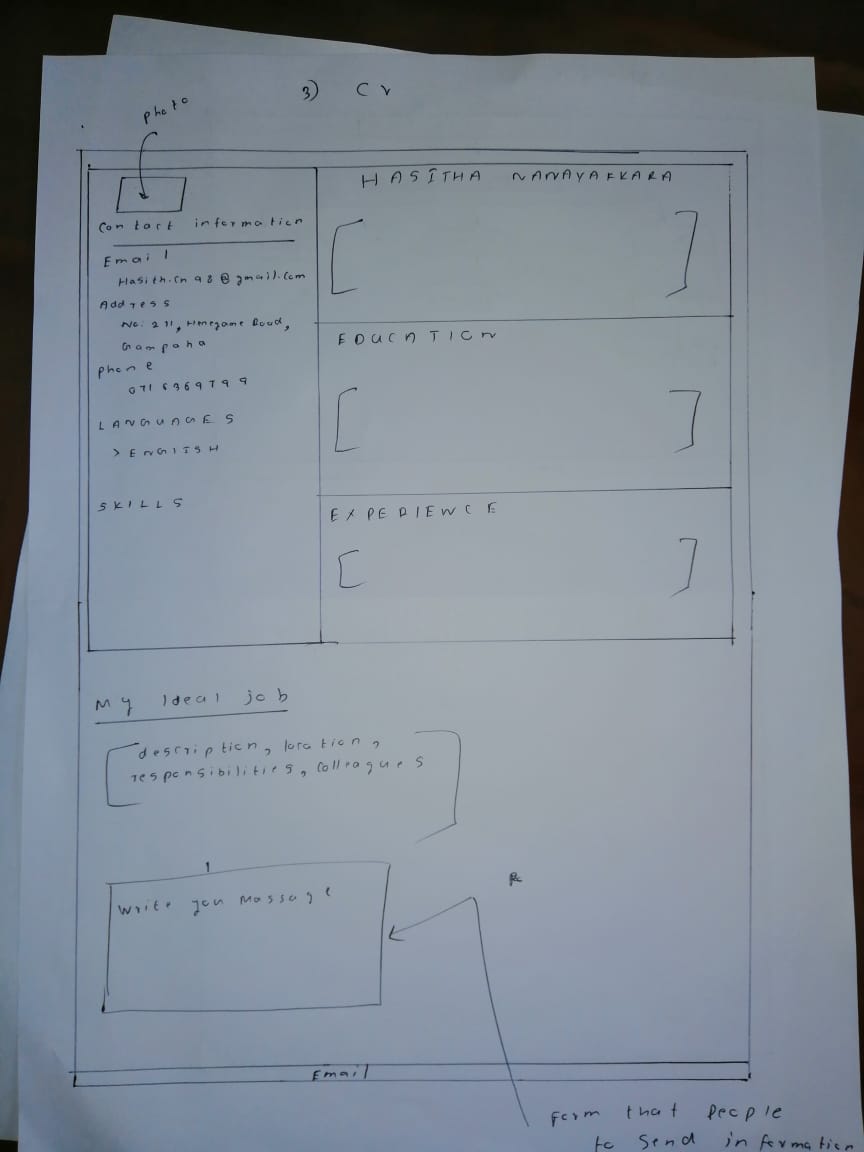 3) CV
photo
Contact information
Email
Hasith.cn98@gmail.com
Address
No: 211, Henegama Road,
Gampaha
phone
0716369799
LANGUAGES
> ENGLISH
SKILLS
HASITHA NANAYAKKARA
[ ]
EDUCATION
[ ]
EXPERIENCE
[ ]
My Ideal job
[description, location,
responsibilities, colleagues]
Write you Massage
Email
Form that people
to send information